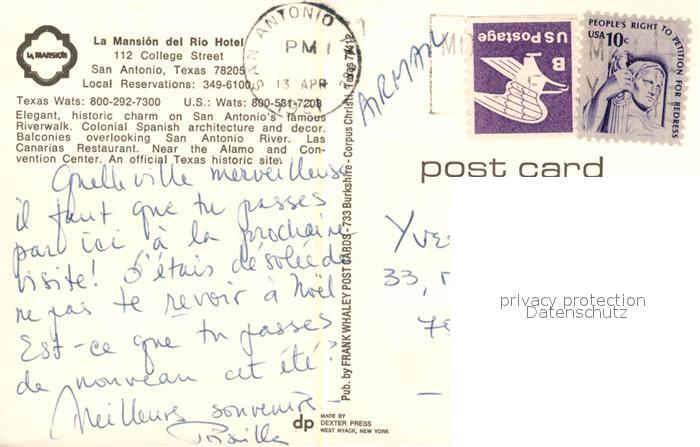 LA MANSION
La Mansión del Rio Hotel
112 College Street
San Antonio, Texas 78205
Local Reservations: 349-6100
Texas Wats: 800-292-7300 U.S.: Wats: 800-531-7208
Elegant, historic charm on San Antonio's famous
Riverwalk. Colonial Spanish architecture and decor.
Balconies overlooking San Antonio River. Las
Canarias Restaurant. Near the Alamo and Con-
vention Center. An official Texas historic site.
SAN ANTONIO
PM
13 APR
AIRMAIL
US Postage
B
PEOPLE'S RIGHT TO PETITION FOR REDRESS
USA 10c
post card
Quelle ville merveilleuse
il faut que tu passes
par ici à la prochaine
visite! J'étais désolée de
ne pas te revoir à Noël
Est-ce que tu passes
de nouveau cet été?
Meilleurs souvenirs
Yves
33,
privacy protection
Datenschutz
Pub. by FRANK WHALEY POST CARDS - 733 Burkshire - Corpus Christi, Texas 78412
dp
MADE BY
DEXTER PRESS
WEST NYACK, NEW YORK